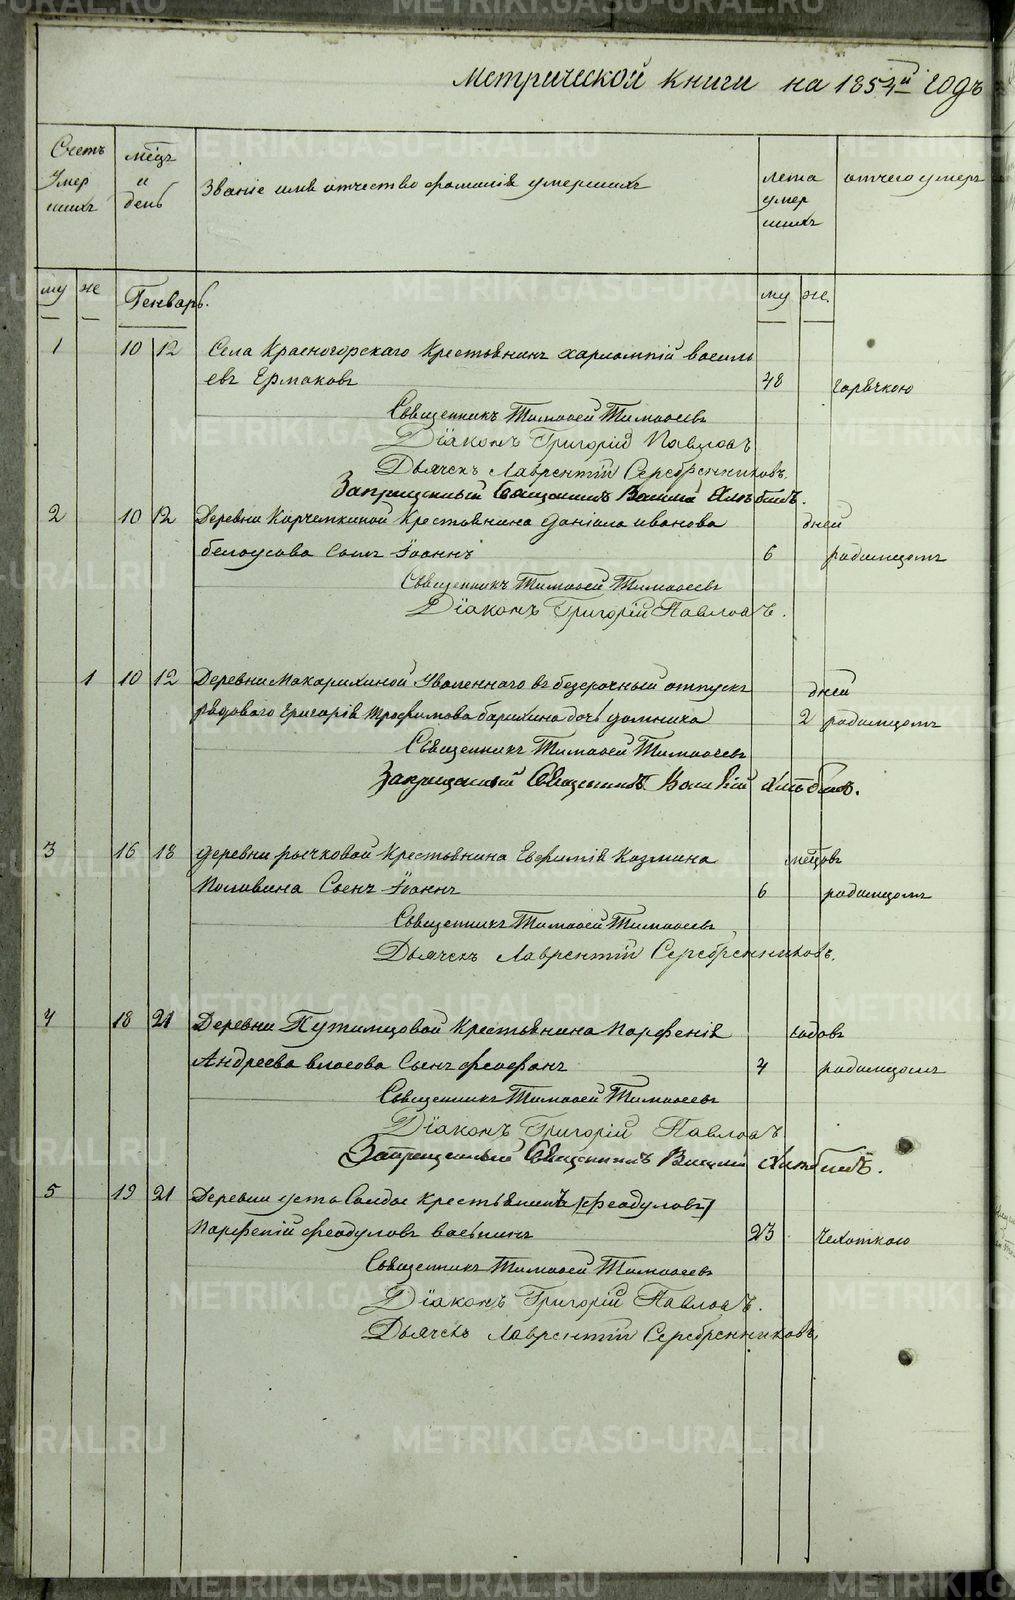 Метрической книги на 1854й годъ
Счетъ умер шихъ
мѣцъ и день
Званіе имя отчество фамилія умершихъ
лета умер шихъ
отчего умеръ
му же
Генварь.
му же
1 10 12 Села Красногорскаго Крестьянинъ Харлампій Василь
евъ Ермаковъ 48 горячкою
Священникъ Тимоѳей Тимоѳеевъ
Діаконъ Григорій Павловъ
Дьячекъ Лаврентій Серебренниковъ.
Запрещенный Священникъ Василій Хлѣбинъ.
2 10 12 Деревни Корчемкиной Крестьянина Даніила Иванова дней
Белоусова Сынъ Іоаннъ 6 родимцомъ
Священникъ Тимоѳей Тимоѳеевъ
Діаконъ Григорій Павловъ.
1 10 12 Деревни Макарихиной Уволеннаго въ безсрочный отпускъ дней
рядоваго Григорія Трофимова дочь Домника 2 родимцомъ
Священникъ Тимоѳей Тимоѳеевъ
Запрещенный Священникъ Василій Хлѣбинъ.
3 16 18 Деревни Рычковой Крестьянина Евфимія Козмина мѣцовъ
Половина Сынъ Іоаннъ 6 родимцомъ
Священникъ Тимоѳей Тимоѳеевъ
Дьячекъ Лаврентій Серебренниковъ.
4 18 21 Деревни Путимцовой Крестьянина Парфенія годовъ
Андреева Власова Сынъ Феофанъ 4 родимцомъ
Священникъ Тимоѳей Тимоѳеевъ
Діаконъ Григорій Павловъ
Запрещенный Священникъ Василій Хлѣбинъ.
5 19 21 Деревни Усть Салды Крестьянинъ (Феодуловъ)
Парфеній Феодуловъ 23 Чехоткою
Священникъ Тимоѳей Тимоѳеевъ
Діаконъ Григорій Павловъ.
Дьячекъ Лаврентій Серебренниковъ.
METRIKI.GASO-URAL.RU